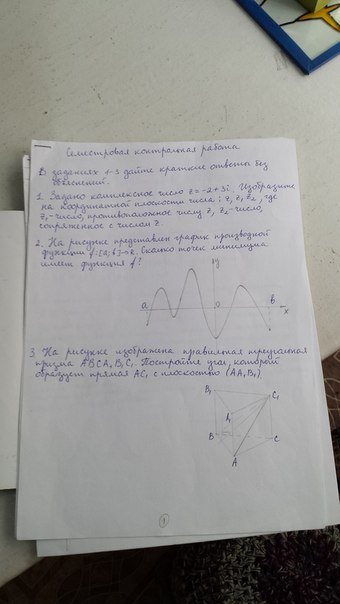 Семестровая контрольная работа
В заданиях 1-3 дайте краткие ответы без
объяснений.
1. Задано комплексное число z=-2+3i. Изобразите
на координатной плоскости числа z, z₁, z₂, где
z₁-число, противоположное числу z, z₂-число,
сопряженное с числом z
2. На рисунке представлен график производной
функции f:[a;b]→R. Сколько точек минимума
имеет функция f?
y
a
0
b
x
3. На рисунке изображена правильная треугольная
призма ABCA₁B₁C₁. Постройте угол, который
образует прямая AC₁ с плоскостью (AA₁B₁).
B₁
C₁
A₁
B
C
A
1